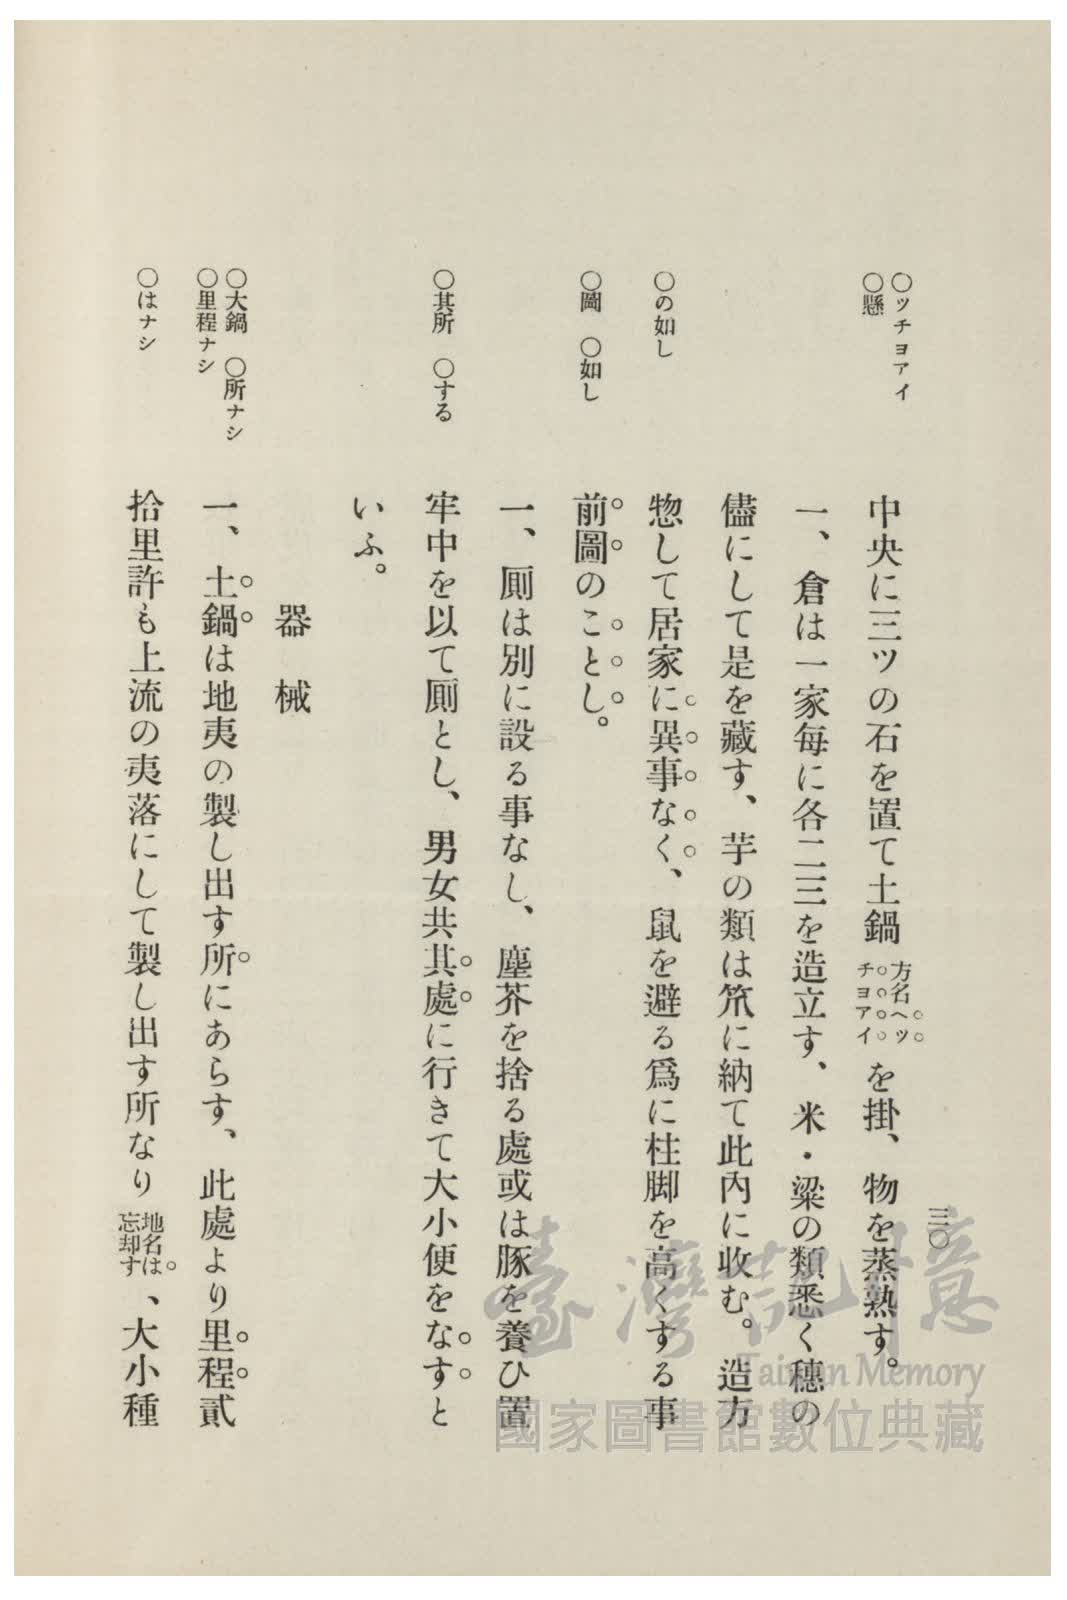 三〇
○ッチョアイ
○懸
中央に三ツの石を置て土鍋方名ヘッチョアイを掛、物を蒸熟す。
一、倉は一家每に各二三を造立す、米・粱の類悉く穗の
○の如し
儘にして是を藏す、芋の類は笊に納て此內に收む。造方
惣して居家に異事なく、鼠を避る爲に柱脚を高くする事
○圖　○如し
前圖のことし。
一、厠は別に設る事なし、塵芥を捨る處或は豚を養ひ置
○其所　○する
牢中を以て厠とし、男女共其處に行きて大小便をなすと
いふ。
器　械
○大鍋　○所ナシ
○里程ナシ
一、土鍋は地夷の製し出す所にあらす、此處より里程貳
○はナシ
拾里許も上流の夷落にして製し出す所なり地名は忘却す、大小種
臺灣記憶
Taiwan Memory
國家圖書館數位典藏